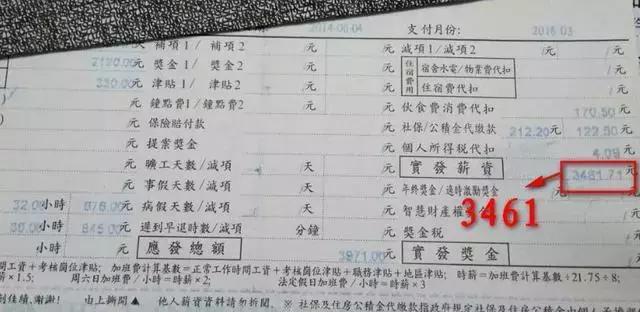 2014-06-04 支付月份: 2016 03
補項1/ 補項2 /元 減項1/減項2 /元
2120.00元 獎金1/ 獎金2 /元 住宿費用 宿舍水電/物業費代扣 元
330.00元 津貼1/ 津貼2 /元 住宿費代扣 元
元 鐘點費1/鐘點費2 /元 伙食費消費代扣 170.50元
元 保險賠付款 元 社保/公積金代繳款 212.20元 122.50元
元 提案獎金 元 個人所得稅代扣 4.09元
元 曠工天數/減項 天 元 實發薪資 3461.71元
元 事假天數/減項 天 元 年終獎金/適時激勵獎金 /元
32.00小時 676.00元 病假天數/減項 天 元 智慧財產權 元
3461
30.00小時 845.00元 遲到早退時數/減項 分鐘 元 獎金稅 元
小時 元 應發總額 3971.00元 實發獎金 元
間工資+考核崗位津貼; 加班費計算基數=正常工作時間工資+考核崗位津貼+職務津貼+地區津貼; 時薪=加班費計算基數÷21.75÷8;
薪×1.5; 周六日加班費/小時=時薪×2; 法定假日加班費/小時=時薪×3
創佳績、謝謝! 由上撕開 ▲ 他人薪資資料請勿拆閱. ※ 社保及住房公積金代繳款指政府規定社保及住房公積金